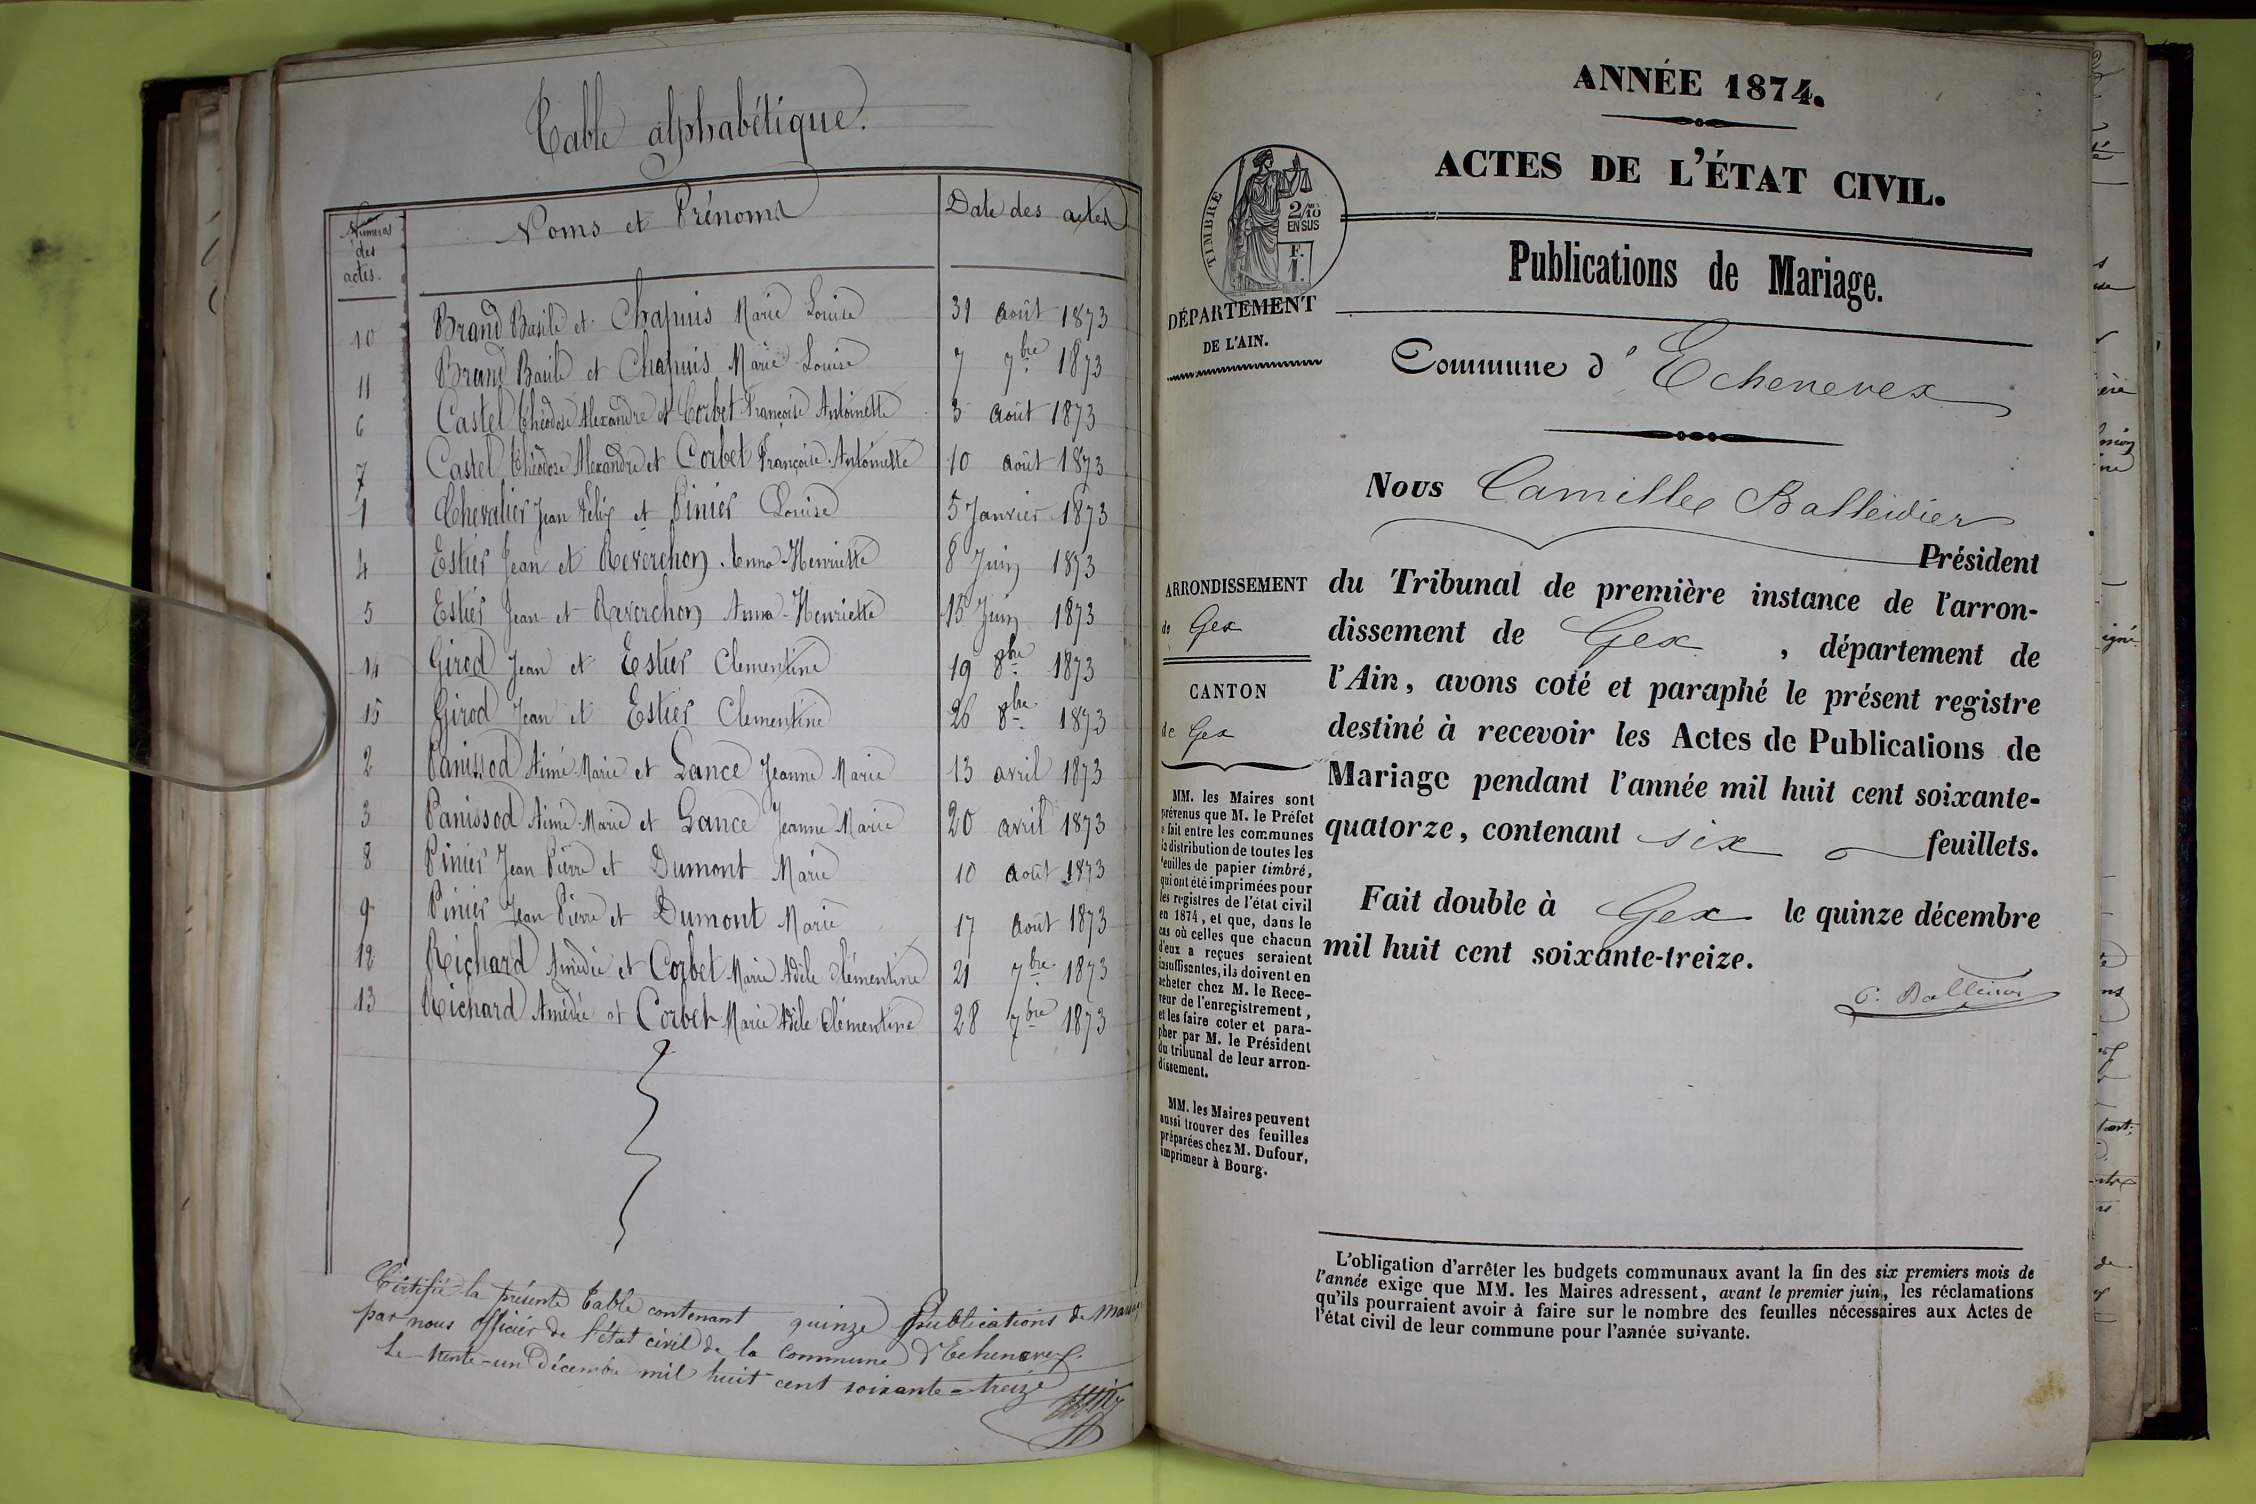 Table alphabétique.
Numéros des actes. Noms et Prénoms Date des actes
10 Brand Basile et Chapuis Marie Louise 31 août 1873
11 Brand Basile et Chapuis Marie Louise 7 7bre 1873
6 Castel Théodose Alexandre et Corbet Françoise Antoinette 3 août 1873
7 Castel Théodose Alexandre et Corbet Françoise Antoinette 10 août 1873
1 Chevalier Jean Félix et Pinier Louise 5 Janvier 1873
4 Estier Jean et Reverchon Anna-Henriette 8 Juin 1873
5 Estier Jean et Reverchon Anna-Henriette 15 Juin 1873
14 Girod Jean et Estier Clementine 19 8bre 1873
15 Girod Jean et Estier Clementine 26 8bre 1873
2 Panissod Aimé-Marie et Lance Jeanne Marie 13 avril 1873
3 Panissod Aimé-Marie et Lance Jeanne Marie 20 avril 1873
8 Pinier Jean Pierre et Dumont Marie 10 août 1873
9 Pinier Jean Pierre et Dumont Marie 17 août 1873
12 Richard Amédée et Corbet Marie Adèle Clémentine 21 7bre 1873
13 Richard Amédée et Corbet Marie Adèle Clémentine 28 7bre 1873
Certifié la présente Table contenant quinze publications de
par nous officier de l'état civil de la commune d'Echenevex.
Le trente-un Décembre mil huit cent soixante-treize
ANNÉE 1874.
ACTES DE L'ÉTAT CIVIL.
TIMBRE
2/10
EN SUS
F.
1.
Publications de Mariage.
DÉPARTEMENT
DE L'AIN.
Commune d'Echenevex
Nous Camille Balleidier
Président
du Tribunal de première instance de l'arron-
dissement de Gex, département de
l'Ain, avons coté et paraphé le présent registre
destiné à recevoir les Actes de Publications de
Mariage pendant l'année mil huit cent soixante-
quatorze, contenant six feuillets.
Fait double à Gex le quinze décembre
mil huit cent soixante-treize.
C. Balleidier
ARRONDISSEMENT
de Gex
CANTON
de Gex
MM. les Maires sont
prévenus que M. le Préfet
a fait entre les communes
la distribution de toutes les
feuilles de papier timbré,
qui ont été imprimées pour
les registres de l'état civil
en 1874, et que, dans le
cas où celles que chacun
d'eux a reçues seraient
insuffisantes, ils doivent en
acheter chez M. le Rece-
veur de l'enregistrement,
et les faire coter et para-
pher par M. le Président
du tribunal de leur arron-
dissement.
MM. les Maires peuvent
aussi trouver des feuilles
préparées chez M. Dufour,
imprimeur à Bourg.
L'obligation d'arrêter les budgets communaux avant la fin des six premiers mois de
l'année exige que MM. les Maires adressent, avant le premier juin, les réclamations
qu'ils pourraient avoir à faire sur le nombre des feuilles nécessaires aux Actes de
l'état civil de leur commune pour l'année suivante.